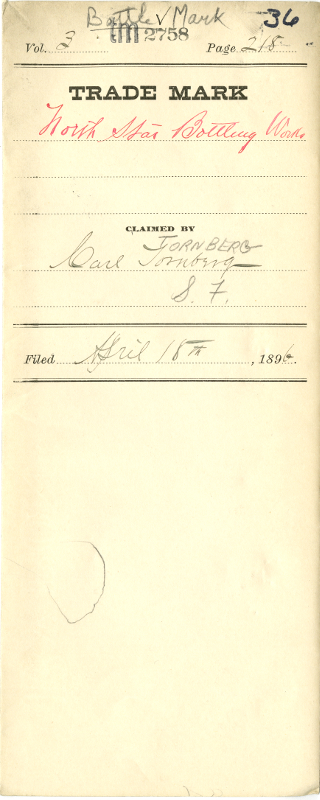 Bottle Mark 36
tm 2758
Vol. 3 Page 218
TRADE MARK
North Star Bottling Works
CLAIMED BY
TORNBERG
Carl Tornberg
S. F.
Filed April 18th, 1896.